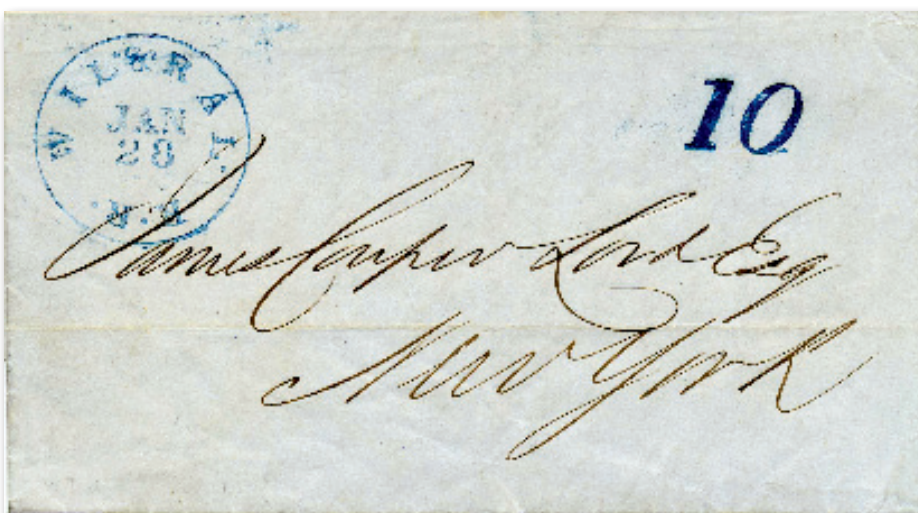 WIL & RAL.
JAN
28
R.R.
10
James Couper Lord Esq
New York